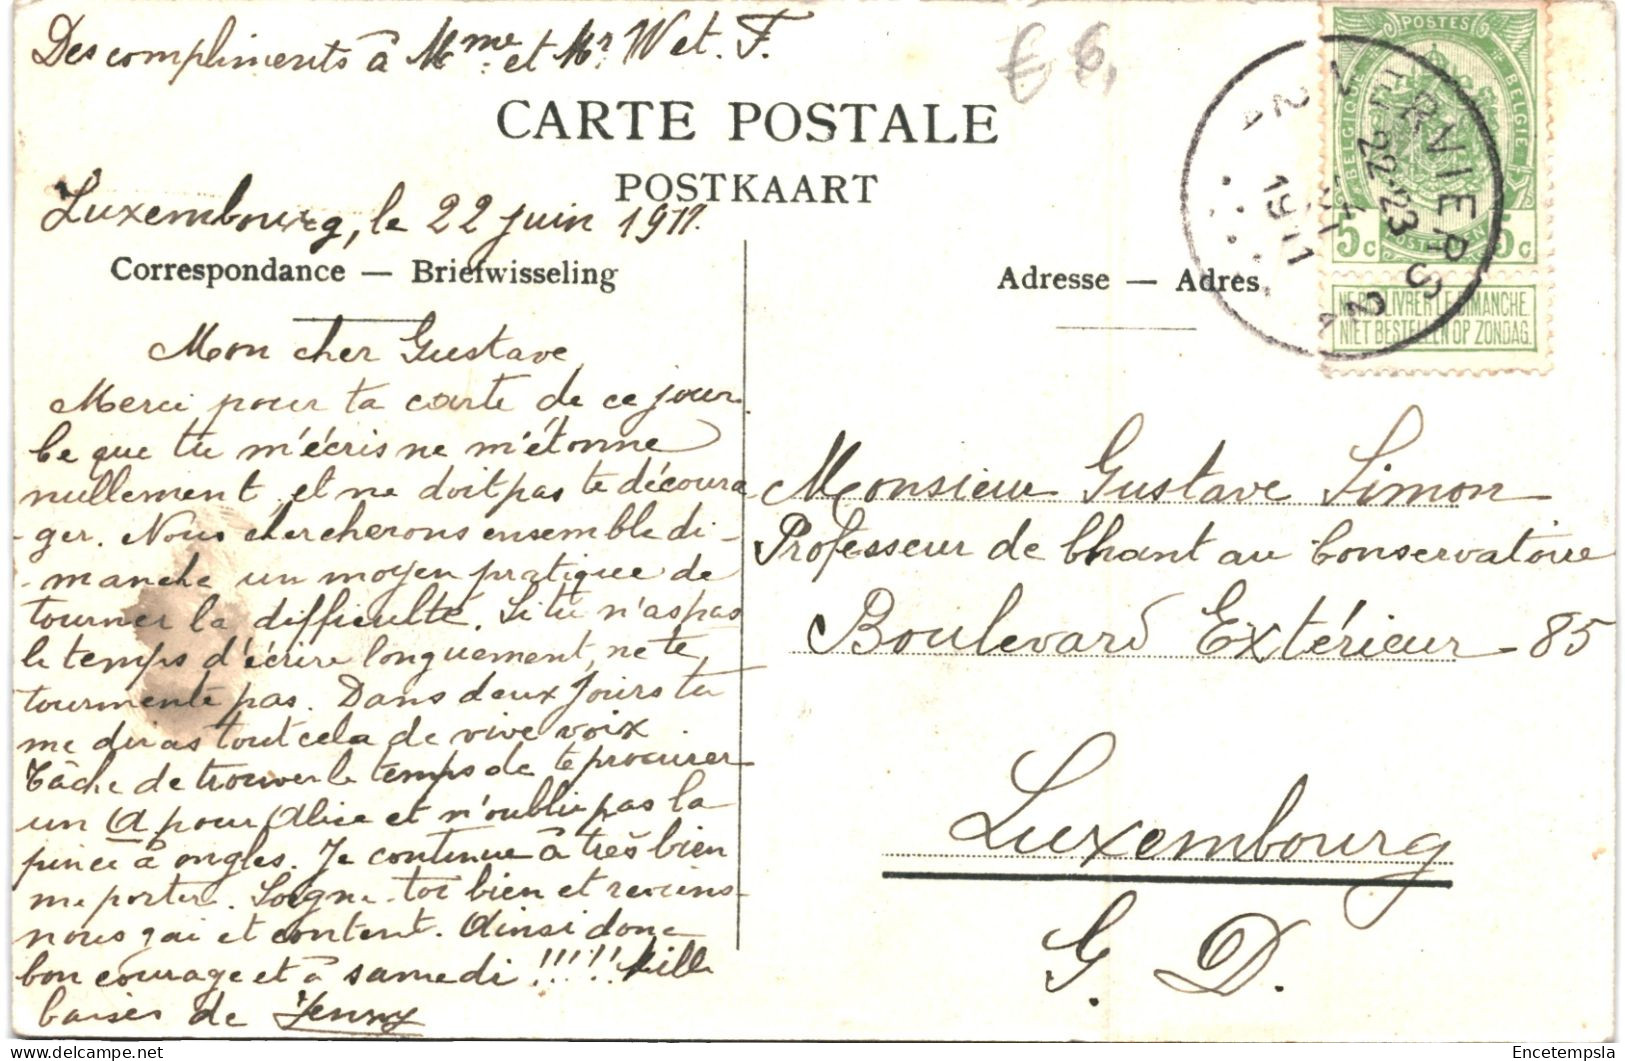 Des compliments à Mme et Mr W et. F.
€ 6,
CARTE POSTALE
POSTKAART
Luxembourg, le 22 juin 1911.
Correspondance — Briefwisseling
Mon cher Gustave,
Merci pour ta carte de ce jour.
Ce que tu m'écris ne m'étonne
nullement, et ne doit pas te découra
-ger. Nous chercherons ensemble di-
-manche un moyen pratique de
tourner la difficulté. Si tu n'as pas
le temps d'écrire longuement, ne te
tourmente pas. Dans deux jours tu
me diras tout cela de vive voix
Tâche de trouver le temps de te procurer
un A pour Alice et n'oublie pas la
pince à ongles. Je continue à très bien
me porter. Soigne-toi bien et reviens-
nous gai et content. Ainsi donc
bon courage et à samedi !!!!!! Mille
baisers de Jenny
POSTES
BELGIQUE
BELGIE
5c 5c
NE PAS LIVRER LE DIMANCHE.
NIET BESTELLEN OP ZONDAG.
VERVIERS 2
22-23
1911
Adresse — Adres
Monsieur Gustave Simon
Professeur de Chant au Conservatoire
Boulevard Extérieur 85
Luxembourg
G. D.
Encetempsla